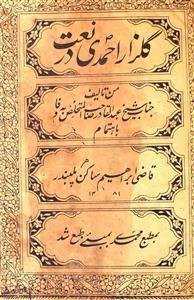 گلزار احمدی در نعت
من تالیف
جناب شیخ عبدالقادر صاحب المتخلص وفا
باہتمام
قاضی ابراہیم ساکن پلبندر
۱۲۸۱
بمطبع محمدی بمبئی طبع شد